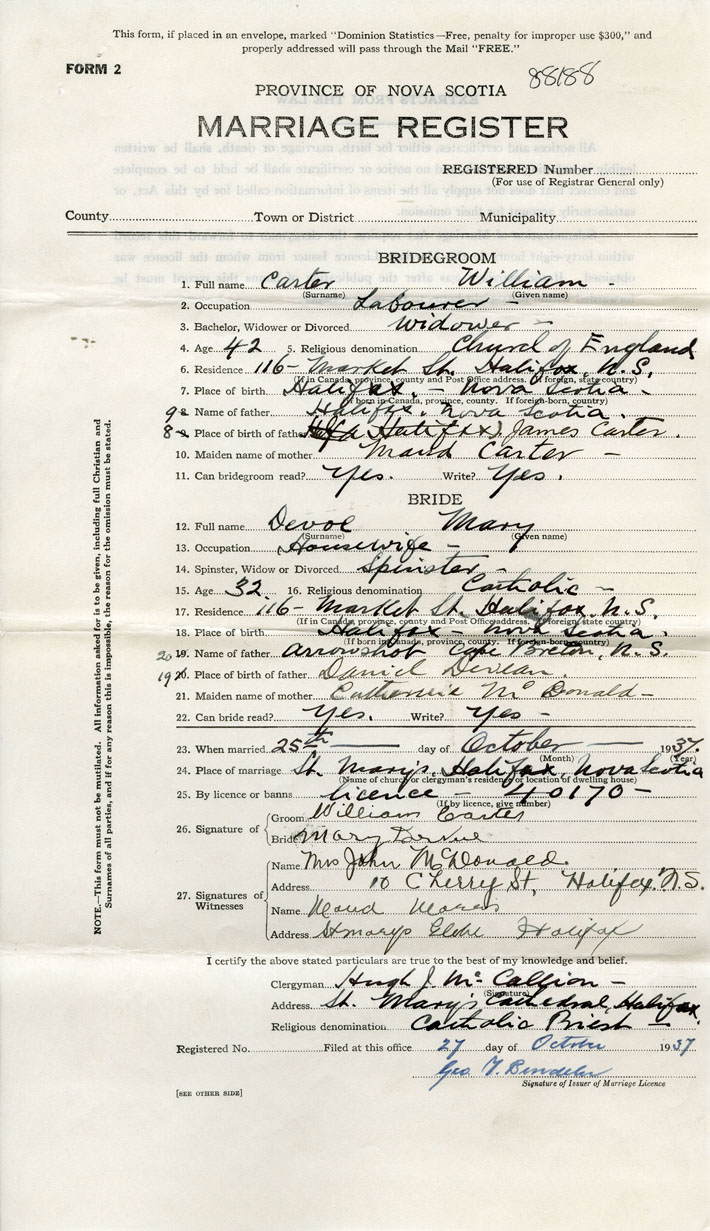 This form, if placed in an envelope, marked "Dominion Statistics—Free, penalty for improper use $300," and
properly addressed will pass through the Mail "FREE."
FORM 2
88188
PROVINCE OF NOVA SCOTIA
MARRIAGE REGISTER
REGISTERED Number
(For use of Registrar General only)
County Town or District Municipality
BRIDEGROOM
1. Full name Carter William -
(Surname) (Given name)
2. Occupation Labourer -
3. Bachelor, Widower or Divorced Widower -
4. Age 42 5. Religious denomination Church of England
6. Residence 116- Market St. Halifax, N.S.
(If in Canada, province, county and Post Office address. If foreign, state country)
7. Place of birth Halifax - Nova Scotia -
(If born in Canada, province, county. If foreign-born, country)
9 8. Name of father Halifax, Nova Scotia.
8 9. Place of birth of father (Halifax) James Carter.
10. Maiden name of mother Maud Carter -
11. Can bridegroom read? Yes. Write? Yes.
BRIDE
12. Full name Devoe Mary
(Surname) (Given name)
13. Occupation Housewife -
14. Spinster, Widow or Divorced Spinster -
15. Age 32 16. Religious denomination Catholic -
17. Residence 116- Market St. Halifax, N.S.
(If in Canada, province, county and Post Office address. If foreign, state country)
18. Place of birth Halifax - Nova Scotia.
(If born in Canada, province, county. If foreign-born, country)
20 19. Name of father Arrowshot Cape Breton, N.S.
19 20. Place of birth of father Daniel
21. Maiden name of mother Catherine McDonald -
22. Can bride read? Yes. Write? Yes -
23. When married 25th day of October 1937.
(Month) (Year)
24. Place of marriage St. Mary's, Halifax, Nova Scotia
(Name of church or clergyman's residence or location of dwelling house)
25. By licence or banns licence - 40170 -
(If by licence, give number)
26. Signature of
Groom William Carter
Bride Mary
27. Signatures of Witnesses
Name Mrs John McDonald.
Address 10 Cherry St, Halifax. N.S.
Name Maud
Address St marys Glebe Halifax
I certify the above stated particulars are true to the best of my knowledge and belief.
Clergyman Hugh J. McCallion -
(Signature)
Address St. Mary's Cathedral, Halifax.
Religious denomination Catholic Priest -
Registered No. Filed at this office 27 day of October 1937
Geo
Signature of Issuer of Marriage Licence
[SEE OTHER SIDE]
NOTE.—This form must not be mutilated. All information asked for is to be given, including full Christian and
Surnames of all parties, and if for any reason this is impossible, the reason for the omission must be stated.